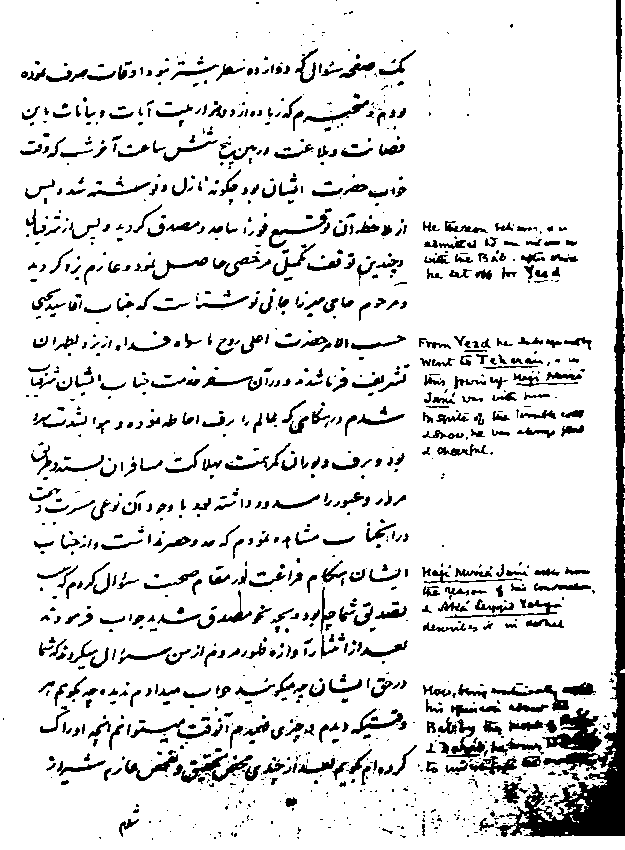 یک صفحه سؤالی که دوازده سطر بیشتر نبود اوقات صرف نموده
بودم و متحیرم که زیاده از دو هزار بیت آیات و بیانات باین
فصاحت و بلاغت در بین پنج شش ساعت آخر شب که وقت
خواب حضرت ایشان بود چگونه نازل و نوشته شد و پس
از ملاحظه آن توقیع فوراً ساجد و مصدق گردید و پس از شرفیابی
و چندین توقف تکمیلی مرخصی حاصل نمود و عازم یزد گردید
و مرحوم حاجی میرزا جانی نوشته است که جناب آقا سید یحیی
حسب الامر حضرت اعلی روح ما سواه فداه از یزد بطهران
تشریف فرما شدند و در آن سفر خدمت جناب ایشان شرفیاب
شدم در هنگامی که عالم را برف احاطه نموده و هوا بشدت سرد
بود و برف و بوران کمر همت بهلاکت مسافران بسته و طریق
مرور و عبور را مسدود داشته بود با وجود آن نوعی مسرت و بهجت
در آنجناب مشاهده نمودم که حد و حصر نداشت و از جناب
ایشان هنگام فراغت در مقام صحبت سؤال کردم که سبب
تصدیق شما چه بود و بچه نحو مصدق شدید جواب فرمودند
بعد از انتشار آوازه ظهور مردم از من سؤال میکردند که شما
در حق ایشان چه میگوئید جواب میدادم ندیده چه گویم هر
وقتیکه دیدم و چیزی فهمیدم آنوقت میتوانم آنچه ادراک
کرده ام بگویم بعد از چندی محض تحقیق و تفحص عازم شیراز
شدم
He thereon believes, & is
admitted to an interview
with the Báb, after which
he set off for Yezd
From Yezd he subsequently
went to Teherán, & in
this journey Haji Mirzá
Jání was with him.
In spite of the terrible cold
& snow, he was always glad
& cheerful.
Haji Mirzá Jání asks him
the reason of his conversion,
& Aká Seyyid Yahyá
describes it in detail
How, being continually asked
his opinion about the
Báb by the people of